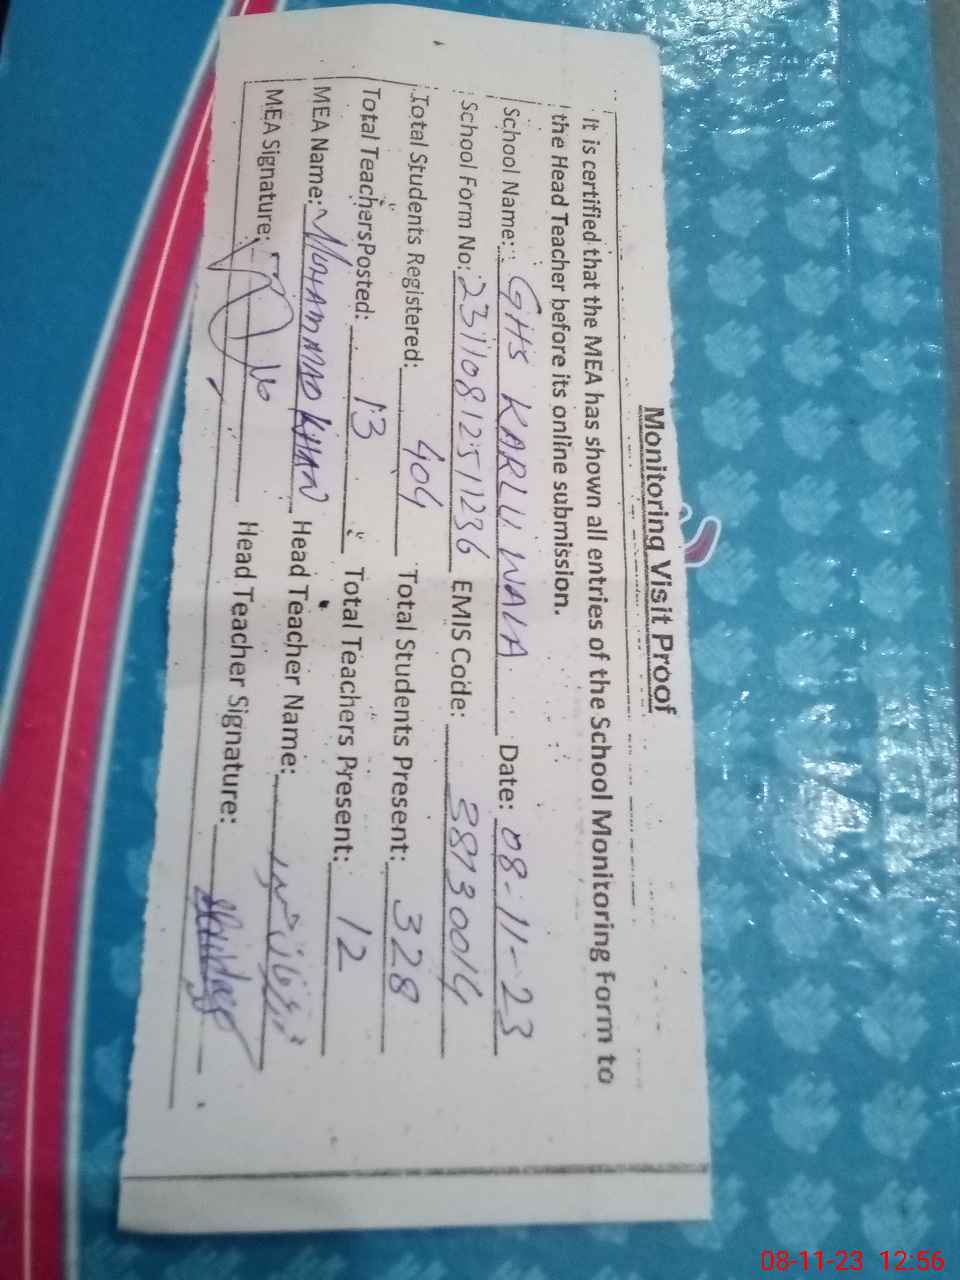 Monitoring Visit Proof
It is certified that the MEA has shown all entries of the School Monitoring Form to
the Head Teacher before its online submission.
School Name: GHS KARLU WALA Date: 08-11-23
School Form No: 23110812511236 EMIS Code: 38130014
Total Students Registered: 404 Total Students Present: 328
Total TeachersPosted: 13 Total Teachers Present: 12
MEA Name: MUHAMMAD KHAN Head Teacher Name:
MEA Signature: Head Teacher Signature:
08-11-23 12:56